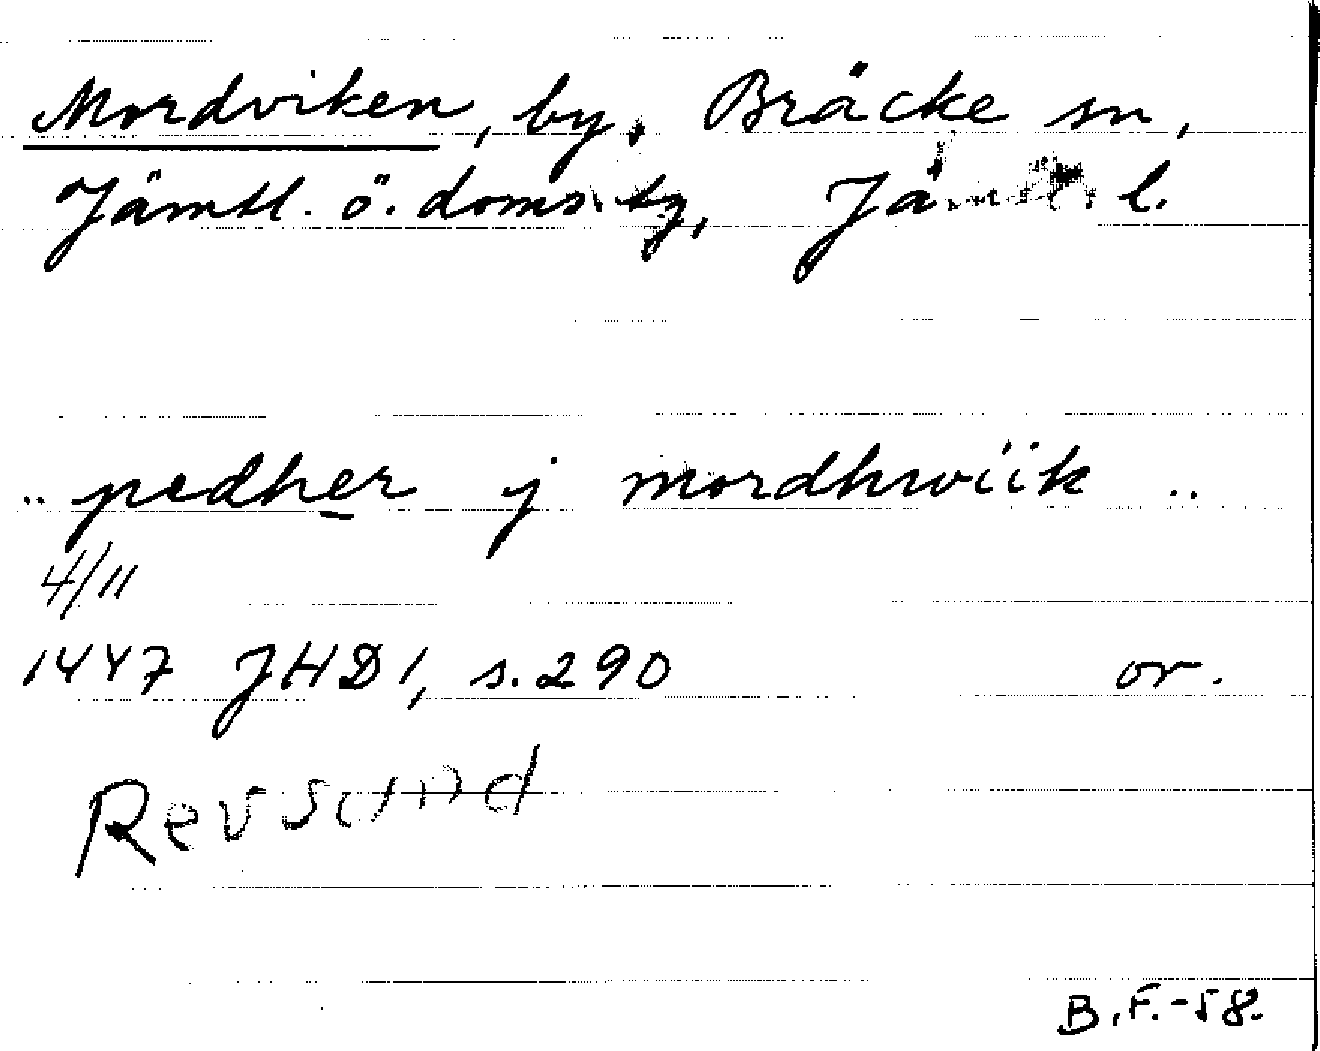 Mordviken, by, Bräcke sn,
Jämtl. ö. doms. tg, Jämtl. l.
.. pedher j mordhwiik ..
4/11
1447 JHD 1, s. 290 or.
Revsund
B.F.-58.